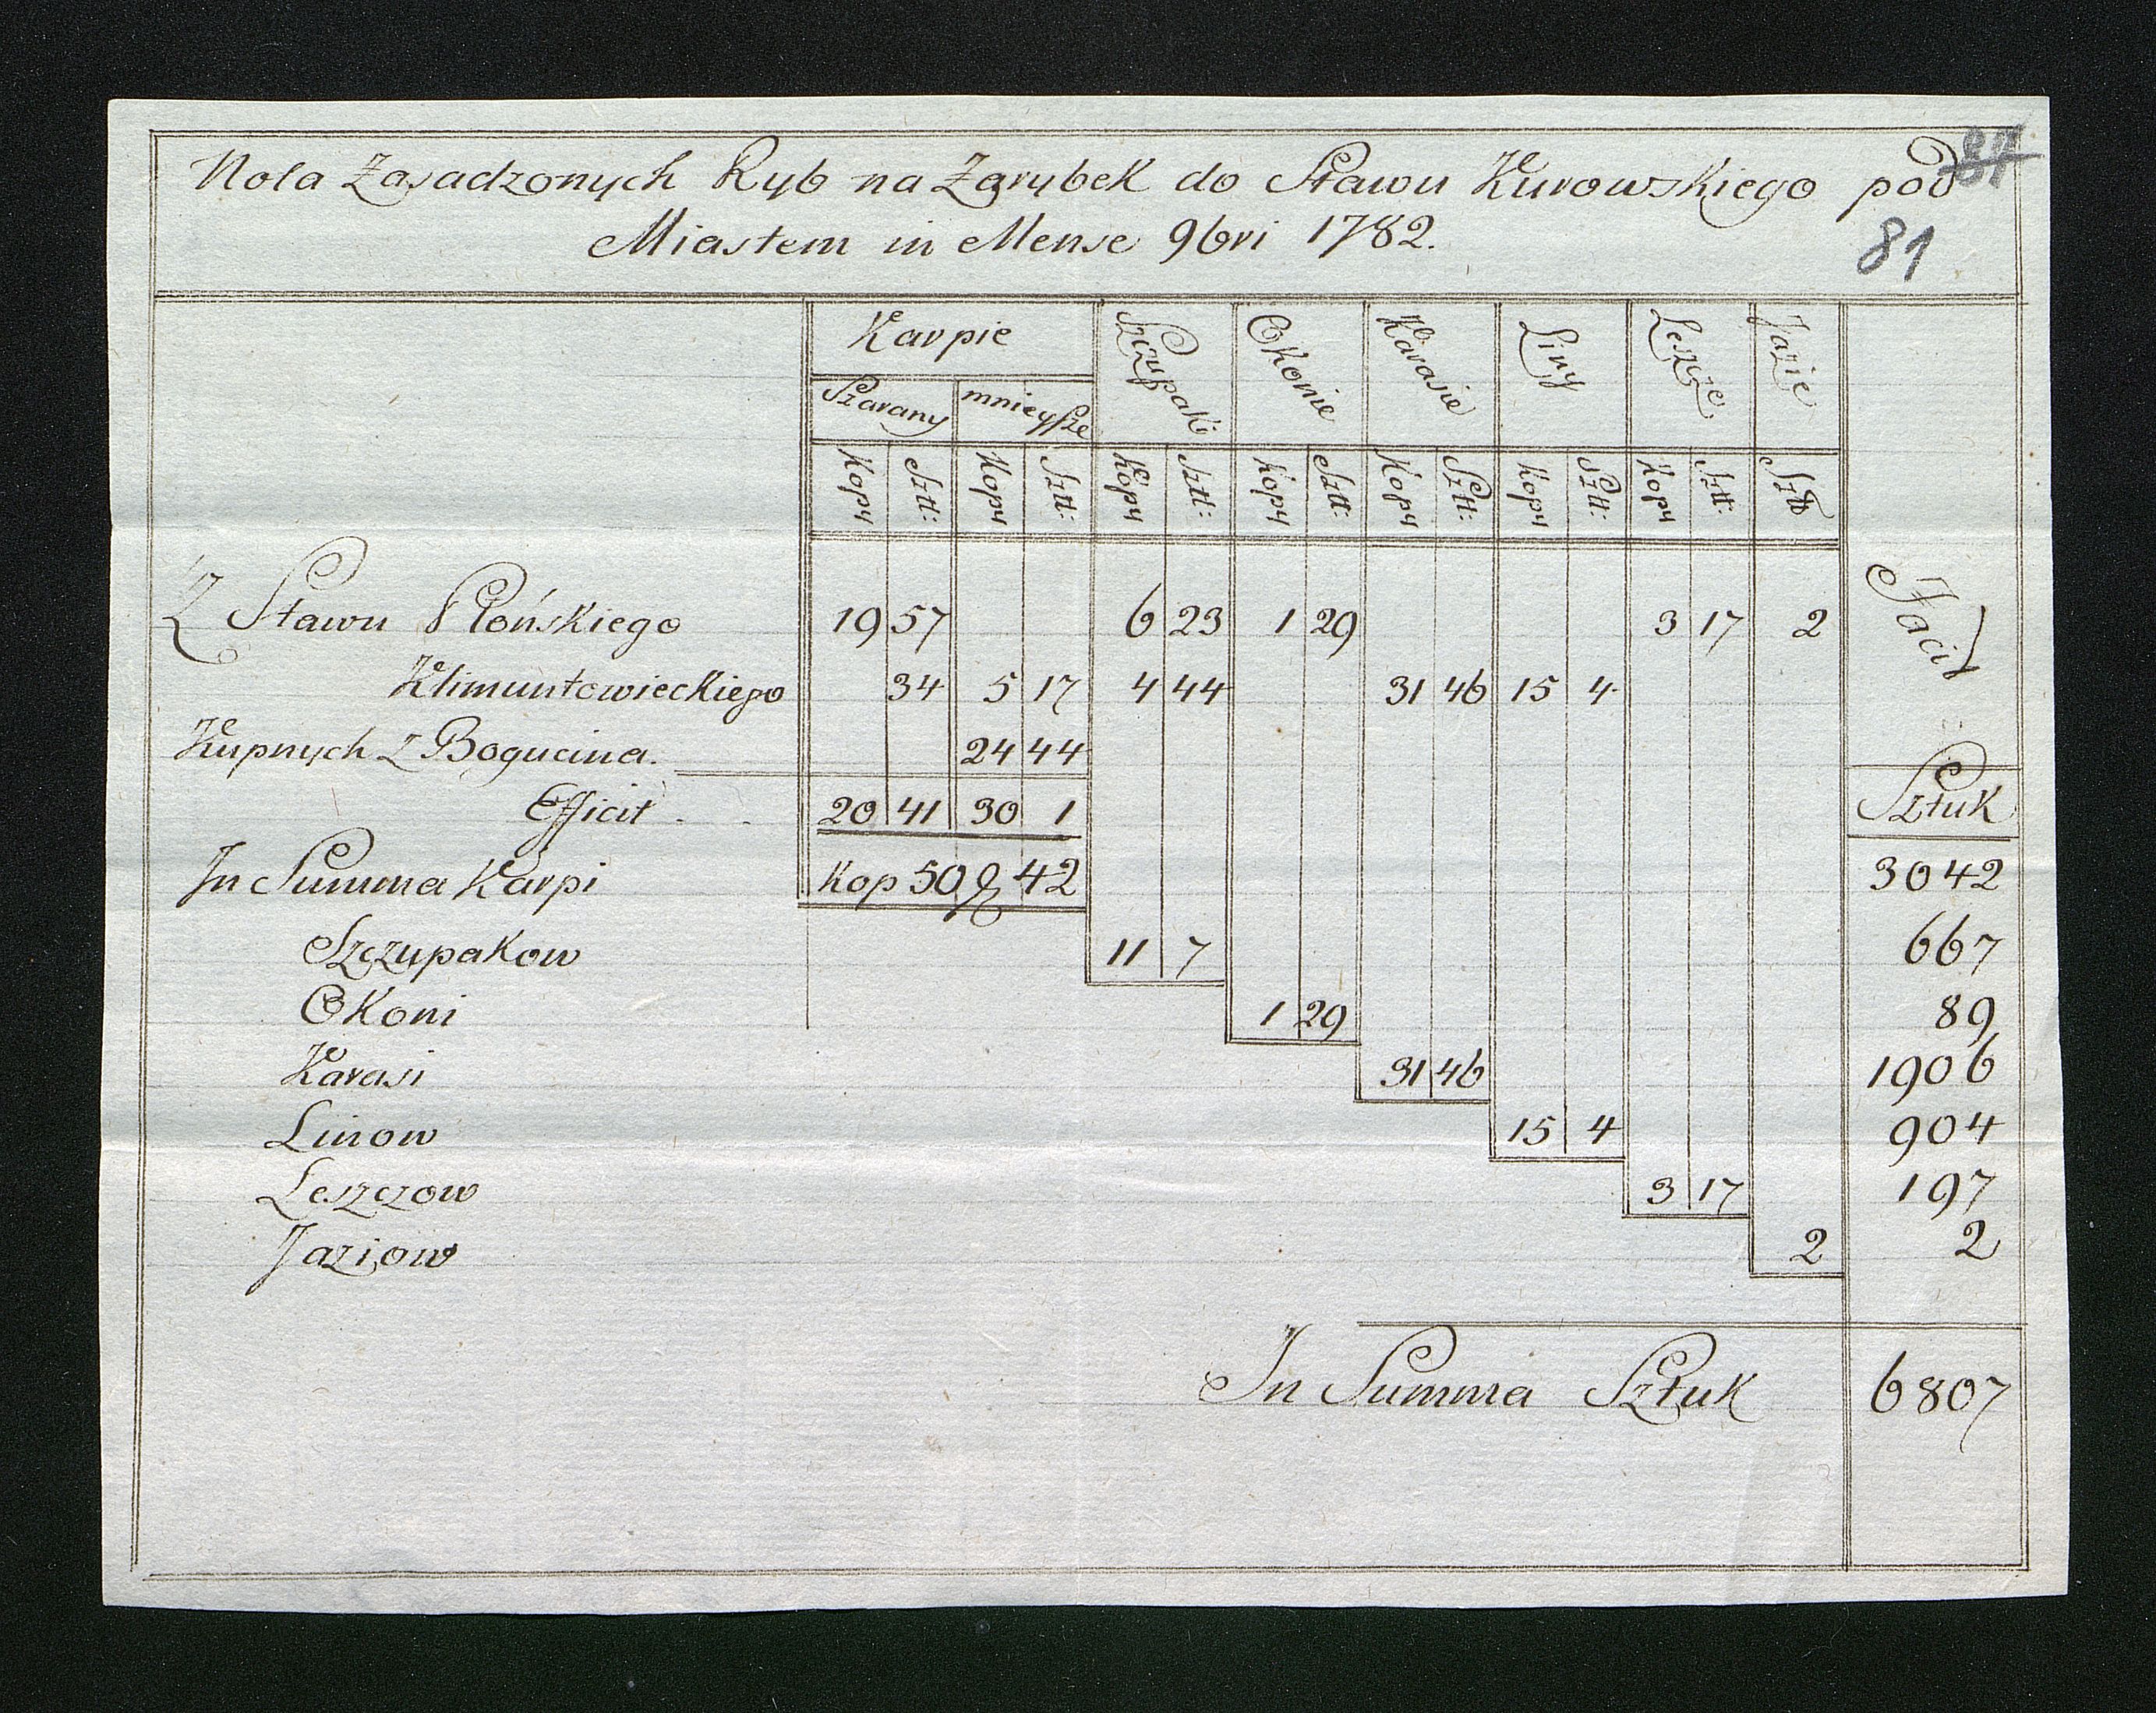 Nota Zasadzonych Ryb na Zarybek do Stawu Kurowskiego pod
Miastem in Mense 9bri 1782.
81
Karpie Szczupaki Okonie Karasie Liny Leszcze Jazie
Szarany mnieysze
Kopy Sztt: Kopy Sztt: Kopy Sztt: Kopy Sztt: Kopy Sztt: Kopy Sztt: Kopy Sztt:
Facit
Z Stawu Płońskiego 19 57 6 23 1 29 3 17 2
Klimuntowieckiego 34 5 17 4 44 31 46 15 4
Kupnych z Bogucina. 24 44
Sztuk
Efficit 20 41 30 1
In Summa Karpi Kop 50 & 42 3042
Szczupakow 11 7 667
Okoni 1 29 89
Karasi 31 46 1906
Linow 15 4 904
Leszczow 3 17 197
Jaziow 2 2
In Summa Sztuk 6807